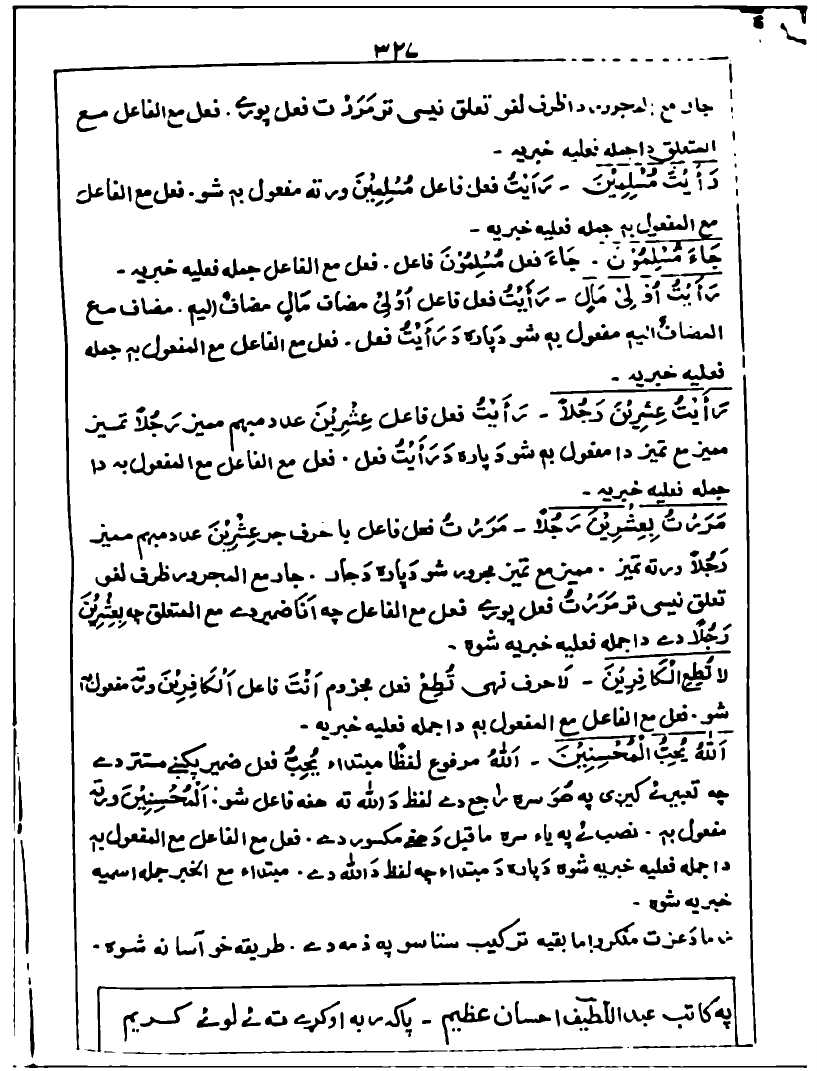 ٣٢٧
جار مع المجرور دا ظرف لغو تعلق نیسی تر مَرَرْتُ فعل پورې . فعل مع الفاعل مع
المتعلق دا جمله فعلیه خبریه -
رَأَيْتُ مُسْلِمِيْنَ - رَأَيْتُ فعل فاعل مُسْلِمِيْنَ ورته مفعول بہ شو . فعل مع الفاعل
مع المفعول بہ جمله فعلیه خبریه -
جَاءَ مُسْلِمُوْنَ . جَاءَ فعل مُسْلِمُوْنَ فاعل . فعل مع الفاعل جمله فعلیه خبریه -
رَأَيْتُ اُوْلِیْ مَالٍ - رَأَيْتُ فعل فاعل اُوْلِیْ مضاف مَالٍ مضاف الیہ . مضاف مع
المضاف الیہ مفعول بہ شو دَپاره دَ رَأَيْتُ فعل . فعل مع الفاعل مع المفعول بہ جمله
فعلیه خبریه -
رَأَيْتُ عِشْرِيْنَ رَجُلاً - رَأَيْتُ فعل فاعل عِشْرِيْنَ عدد مبہم ممیز رَجُلاً تمیز
ممیز مع تمیز دا مفعول بہ شو دَپاره دَ رَأَيْتُ فعل . فعل مع الفاعل مع المفعول بہ دا
جمله فعلیه خبریه -
مَرَرْتُ بِعِشْرِيْنَ رَجُلاً - مَرَرْتُ فعل فاعل با حرف جر عِشْرِيْنَ عدد مبہم ممیز
رَجُلاً ورته تمیز . ممیز مع تمیز مجرور شو دَپاره دَ جار . جار مع المجرور ظرف لغو
تعلق نیسی تر مَرَرْتُ فعل پورې فعل مع الفاعل چه اَنَا ضمیر دے مع المتعلق چه بِعِشْرِيْنَ
رَجُلاً دے دا جمله فعلیه خبریه شوه -
لاَ تُطِعِ الْكَافِرِيْنَ - لاَ حرف نہی تُطِعْ فعل مجزوم اَنْتَ فاعل اَلْكَافِرِيْنَ ورته مفعول بہ
شو . فعل مع الفاعل مع المفعول بہ دا جمله فعلیه خبریه -
اَللّٰهُ يُحِبُّ الْمُحْسِنِيْنَ - اَللّٰهُ مرفوع لفظًا مبتداء يُحِبُّ فعل ضمیر پکښے مستتر دے
چه تعبیر ئے کیږی په هُوَ سره راجع دے لفظ دَ الله ته هغه فاعل شو . اَلْمُحْسِنِيْنَ ورته
مفعول بہ . نصب ئے په یاء سره ما قبل دَ هغے مکسور دے . فعل مع الفاعل مع المفعول بہ
دا جمله فعلیه خبریه شوه دَپاره دَ مبتداء چه لفظ دَ الله دے . مبتداء مع الخبر جمله اسمیه
خبریه شوه -
دَ عزت منکرو اما بقیه ترکیب ستاسو په ذمه دے . طریقه خو آسانه شوه -
په کاتب عبد اللطیف احسان عظیم - پاک ربه اوکړے ته ئے لوئے کریم